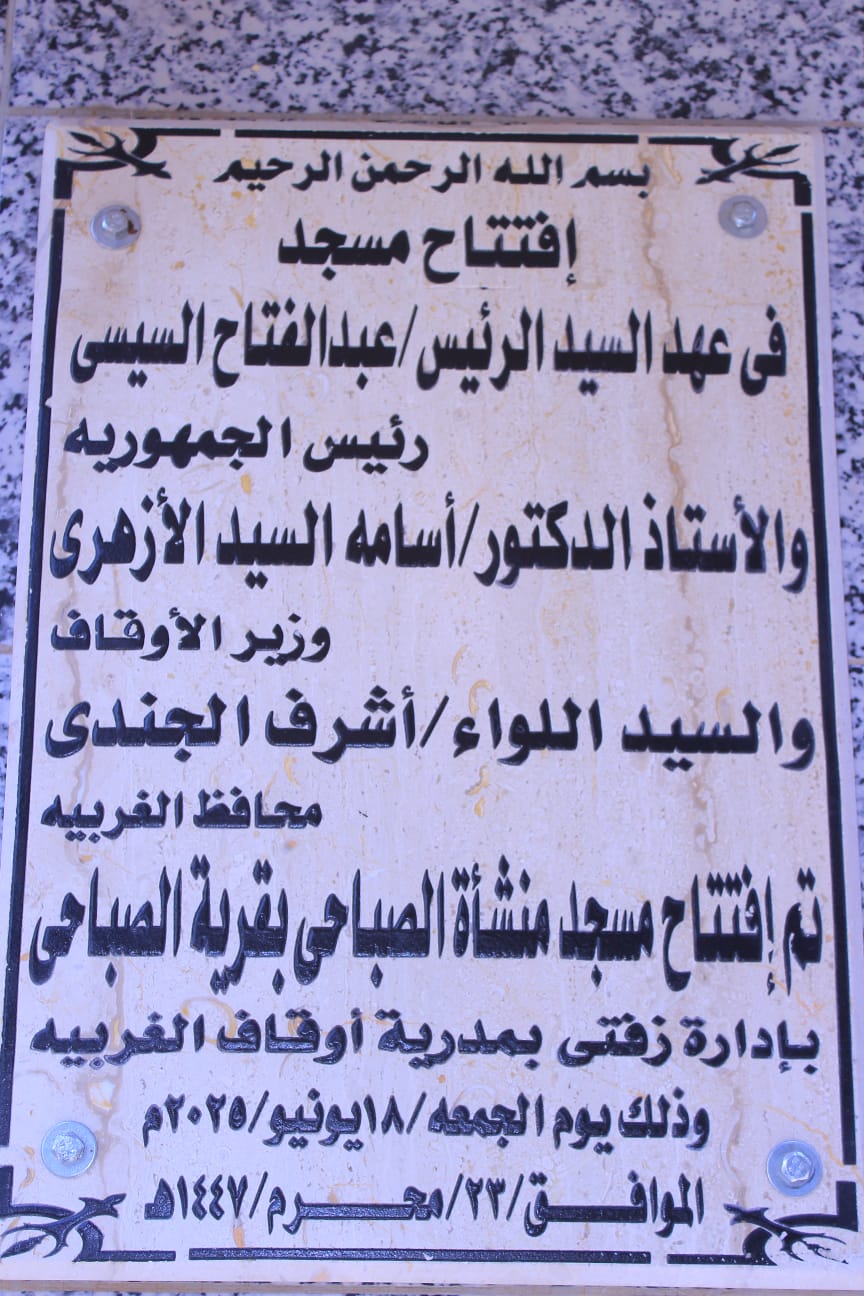 بسم الله الرحمن الرحيم
إفتتاح مسجد
فى عهد السيد الرئيس/عبدالفتاح السيسى
رئيس الجمهوريه
والأستاذ الدكتور/أسامه السيد الأزهرى
وزير الأوقاف
والسيد اللواء/أشرف الجندى
محافظ الغربيه
تم إفتتاح مسجد منشأة الصباحى بقرية الصباحى
بإدارة زفتى بمدرية أوقاف الغربيه
وذلك يوم الجمعه/١٨يونيو/٢٠٢٥م
الموافق/٢٣/محرم/١٤٤٧هـ